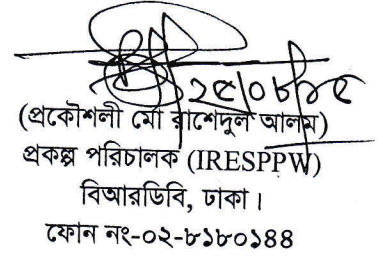 ২৫/০৮/২৫
(প্রকৌশলী মো রাশেদুল আলম)
প্রকল্প পরিচালক (IRESPPW)
বিআরডিবি, ঢাকা।
ফোন নং-০২-৮১৮০১৪৪